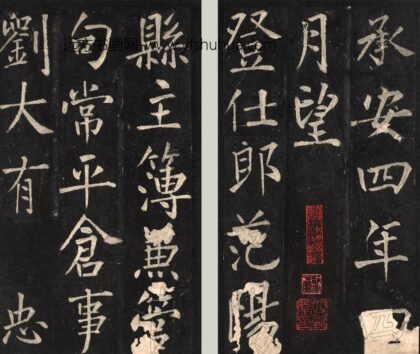 承安四年
月望
登仕郎范陽
縣主簿兼管
勾常平倉事
劉大有 忠